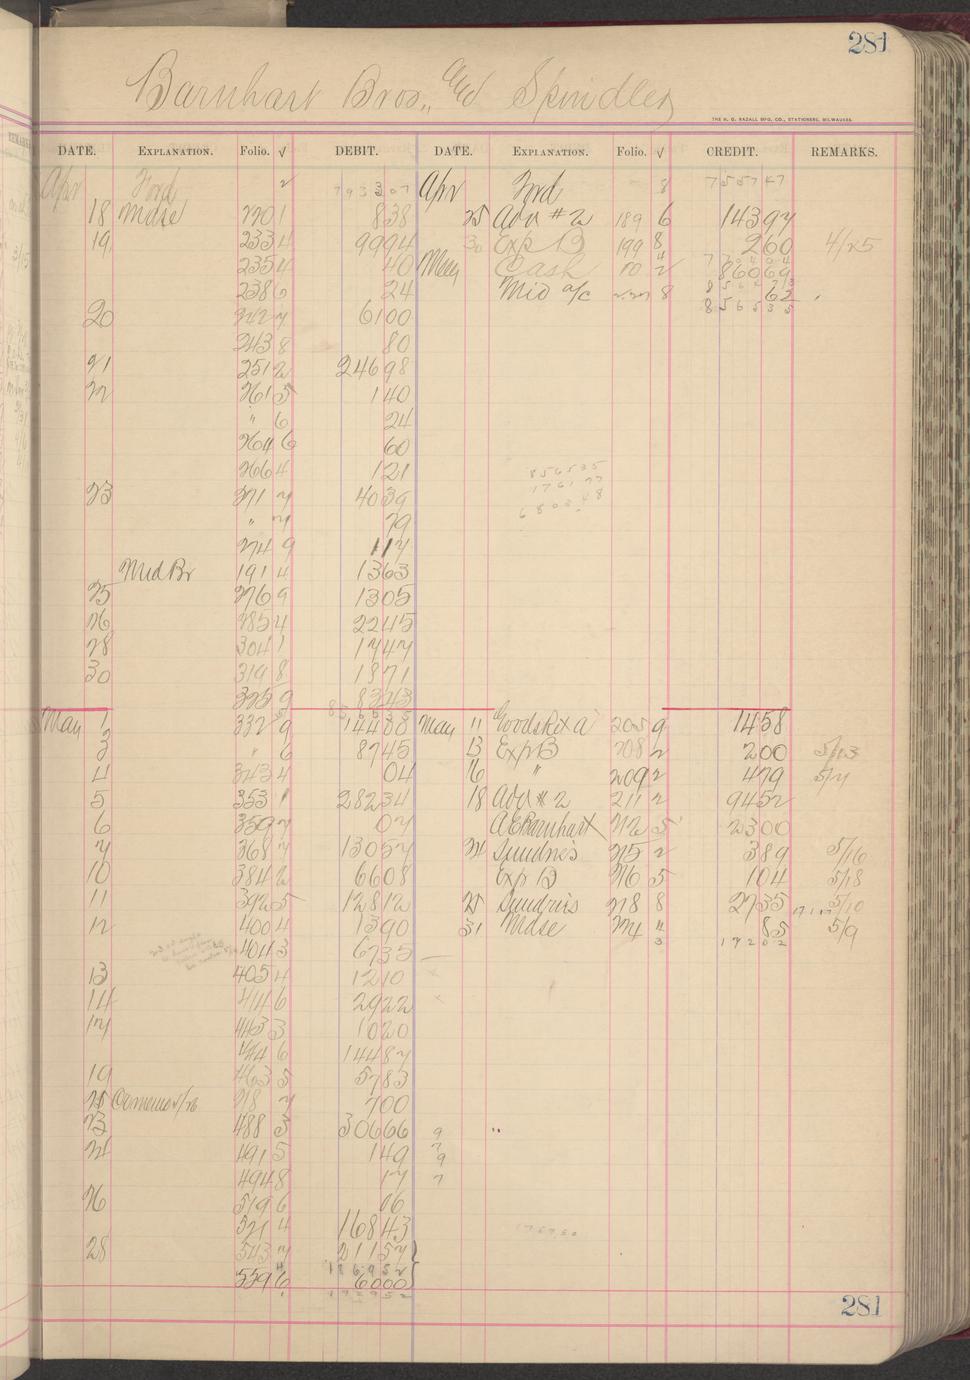 281
Barnhart Bros., and Spindler
THE H. G. RAZALL MFG. CO., STATIONERS, MILWAUKEE.
DATE. EXPLANATION. Folio. √ DEBIT. DATE. EXPLANATION. Folio. √ CREDIT. REMARKS.
Apr Ford 793307 Apr Ford 755747
18 Mdse 220 1 8 38 25 Adv #2 189 6 143 97
19 233 4 99 94 30 Exp B 199 8 2 60 4/25
235 4 40 May Cash 860 69
238 6 24 Mid a/c 8 62
20 242 7 61 00 856535
243 8 80
21 251 2 246 98
22 261 5 1 40
" 6 24
264 6 60
266 4 1 21 856535
23 271 7 40 39
" 7 79
274 9 1 17
Mid Br 191 4 13 63
25 276 9 13 05
26 285 4 22 45
28 304 1 17 47
30 319 8 18 71
325 9 83 43
May 1 332 9 144 00 May 11 Goods Ret'd 205 9 14 58
3 " 6 87 45 13 Exp B 208 2 2 00 5/13
4 343 4 04 16 " 209 2 4 79 5/7
5 353 1 282 34 18 Adv #2 211 2 94 52
6 359 7 07 A E Barnhart 212 5 23 00
7 368 7 130 57 24 Sundries 215 2 3 89 5/16
10 384 2 66 08 Exp B 216 5 1 04 5/18
11 392 5 128 12 25 Sundries 218 8 27 35 5/10
12 400 4 13 90 31 Mdse 85 5/9
404 3 67 35 17202
13 405 4 12 10
14 414 6 29 22
17 443 3 10 20
444 6 144 87
19 463 5 57 83
218 7 7 00
23 488 3 306 66
24 491 5 1 49
494 8 17
26 519 6 06
521 4 168 43
28 543 7 211 57
186952
559 6 60 00
192952
281